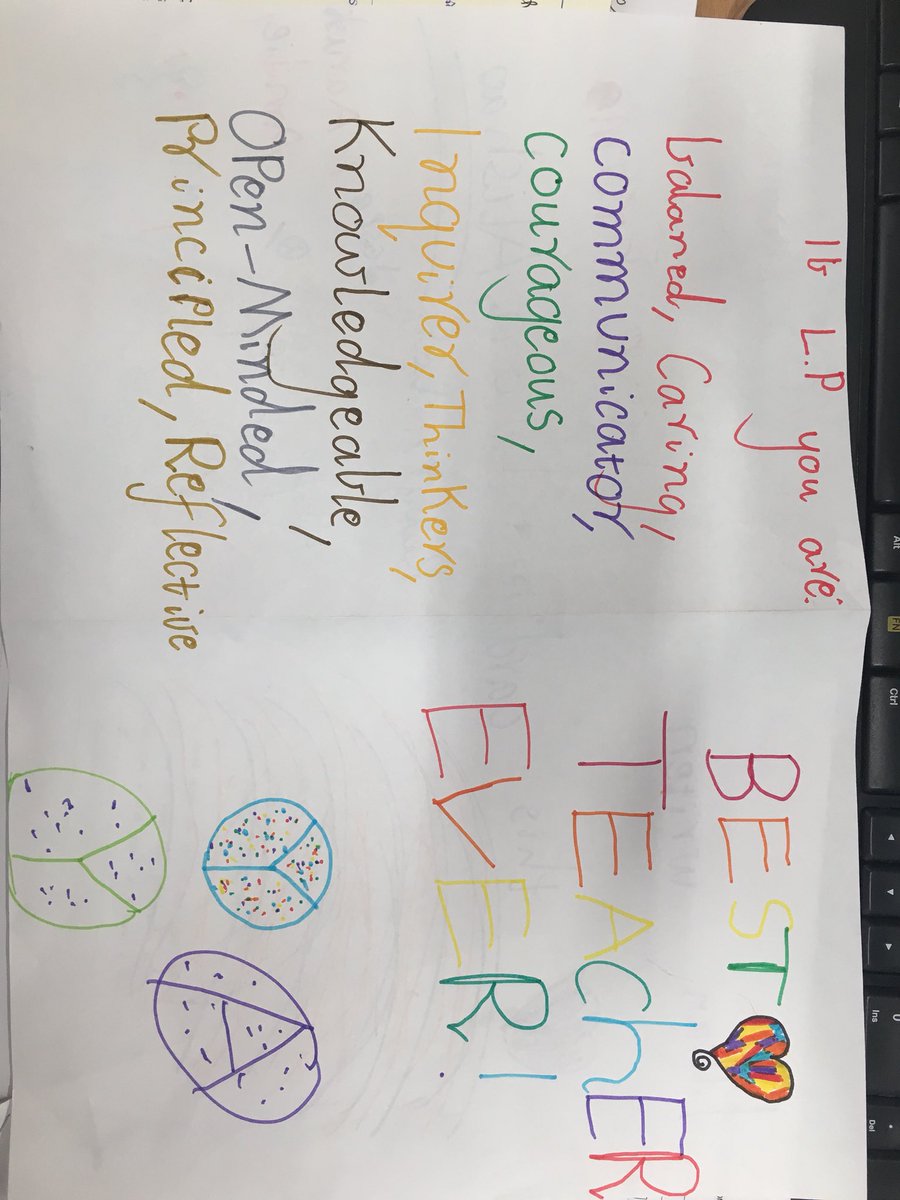 Ib L.P you are:
balanced, Caring,
communicator,
courageous,
Inquirer, Thinkers,
Knowledgeable,
OPen-Minded,
Principled, Reflective
BEST
TEAChER
EVER!
Alt
EN
Ctrl
Ins
Del